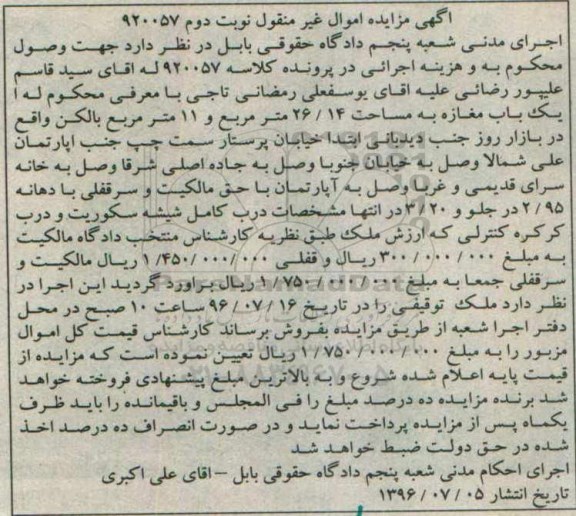 آگهی مزایده اموال غیر منقول نوبت دوم ۹۲۰۰۵۷
اجرای مدنی شعبه پنجم دادگاه حقوقی بابل در نظر دارد جهت وصول
محکوم به و هزینه اجرائی در پرونده کلاسه ۹۲۰۰۵۷ له اقای سید قاسم
علیپور رضائی علیه اقای یوسفعلی رمضانی تاجی با معرفی محکوم له ا
یک باب مغازه به مساحت ۲۶/۱۴ متر مربع و ۱۱ متر مربع بالکن واقع
در بازار روز جنب دیدبانی ابتدا خیابان پرستار سمت چپ جنب اپارتمان
علی شمالا وصل به خیابان جنوبا وصل به جاده اصلی شرقا وصل به خانه
سرای قدیمی و غربا وصل به آپارتمان با حق مالکیت و سرقفلی با دهانه
۲/۹۵ در جلو و ۳/۲۰ در انتها مشخصات درب کامل شیشه سکوریت و درب
کرکره کنترلی که ارزش ملک طبق نظریه کارشناس منتخب دادگاه مالکیت
به مبلغ ۳۰۰/۰۰۰/۰۰۰ ریال و قفلی ۱/۴۵۰/۰۰۰/۰۰۰ ریال مالکیت و
سرقفلی جمعا به مبلغ ۱/۷۵۰/۰۰۰/۰۰۰ ریال براورد گردید این اجرا در
نظر دارد ملک توقیفی را در تاریخ ۹۶/۰۷/۱۶ ساعت ۱۰ صبح در محل
دفتر اجرا شعبه از طریق مزایده بفروش برساند کارشناس قیمت کل اموال
مزبور را به مبلغ ۱/۷۵۰/۰۰۰/۰۰۰ ریال تعیین نموده است که مزایده از
قیمت پایه اعلام شده شروع و به بالاترین مبلغ پیشنهادی فروخته خواهد
شد برنده مزایده ده درصد مبلغ را فی المجلس و باقیمانده را باید ظرف
یکماه پس از مزایده پرداخت نماید و در صورت انصراف ده درصد اخذ
شده در حق دولت ضبط خواهد شد
اجرای احکام مدنی شعبه پنجم دادگاه حقوقی بابل – اقای علی اکبری
تاریخ انتشار ۱۳۹۶/۰۷/۰۵